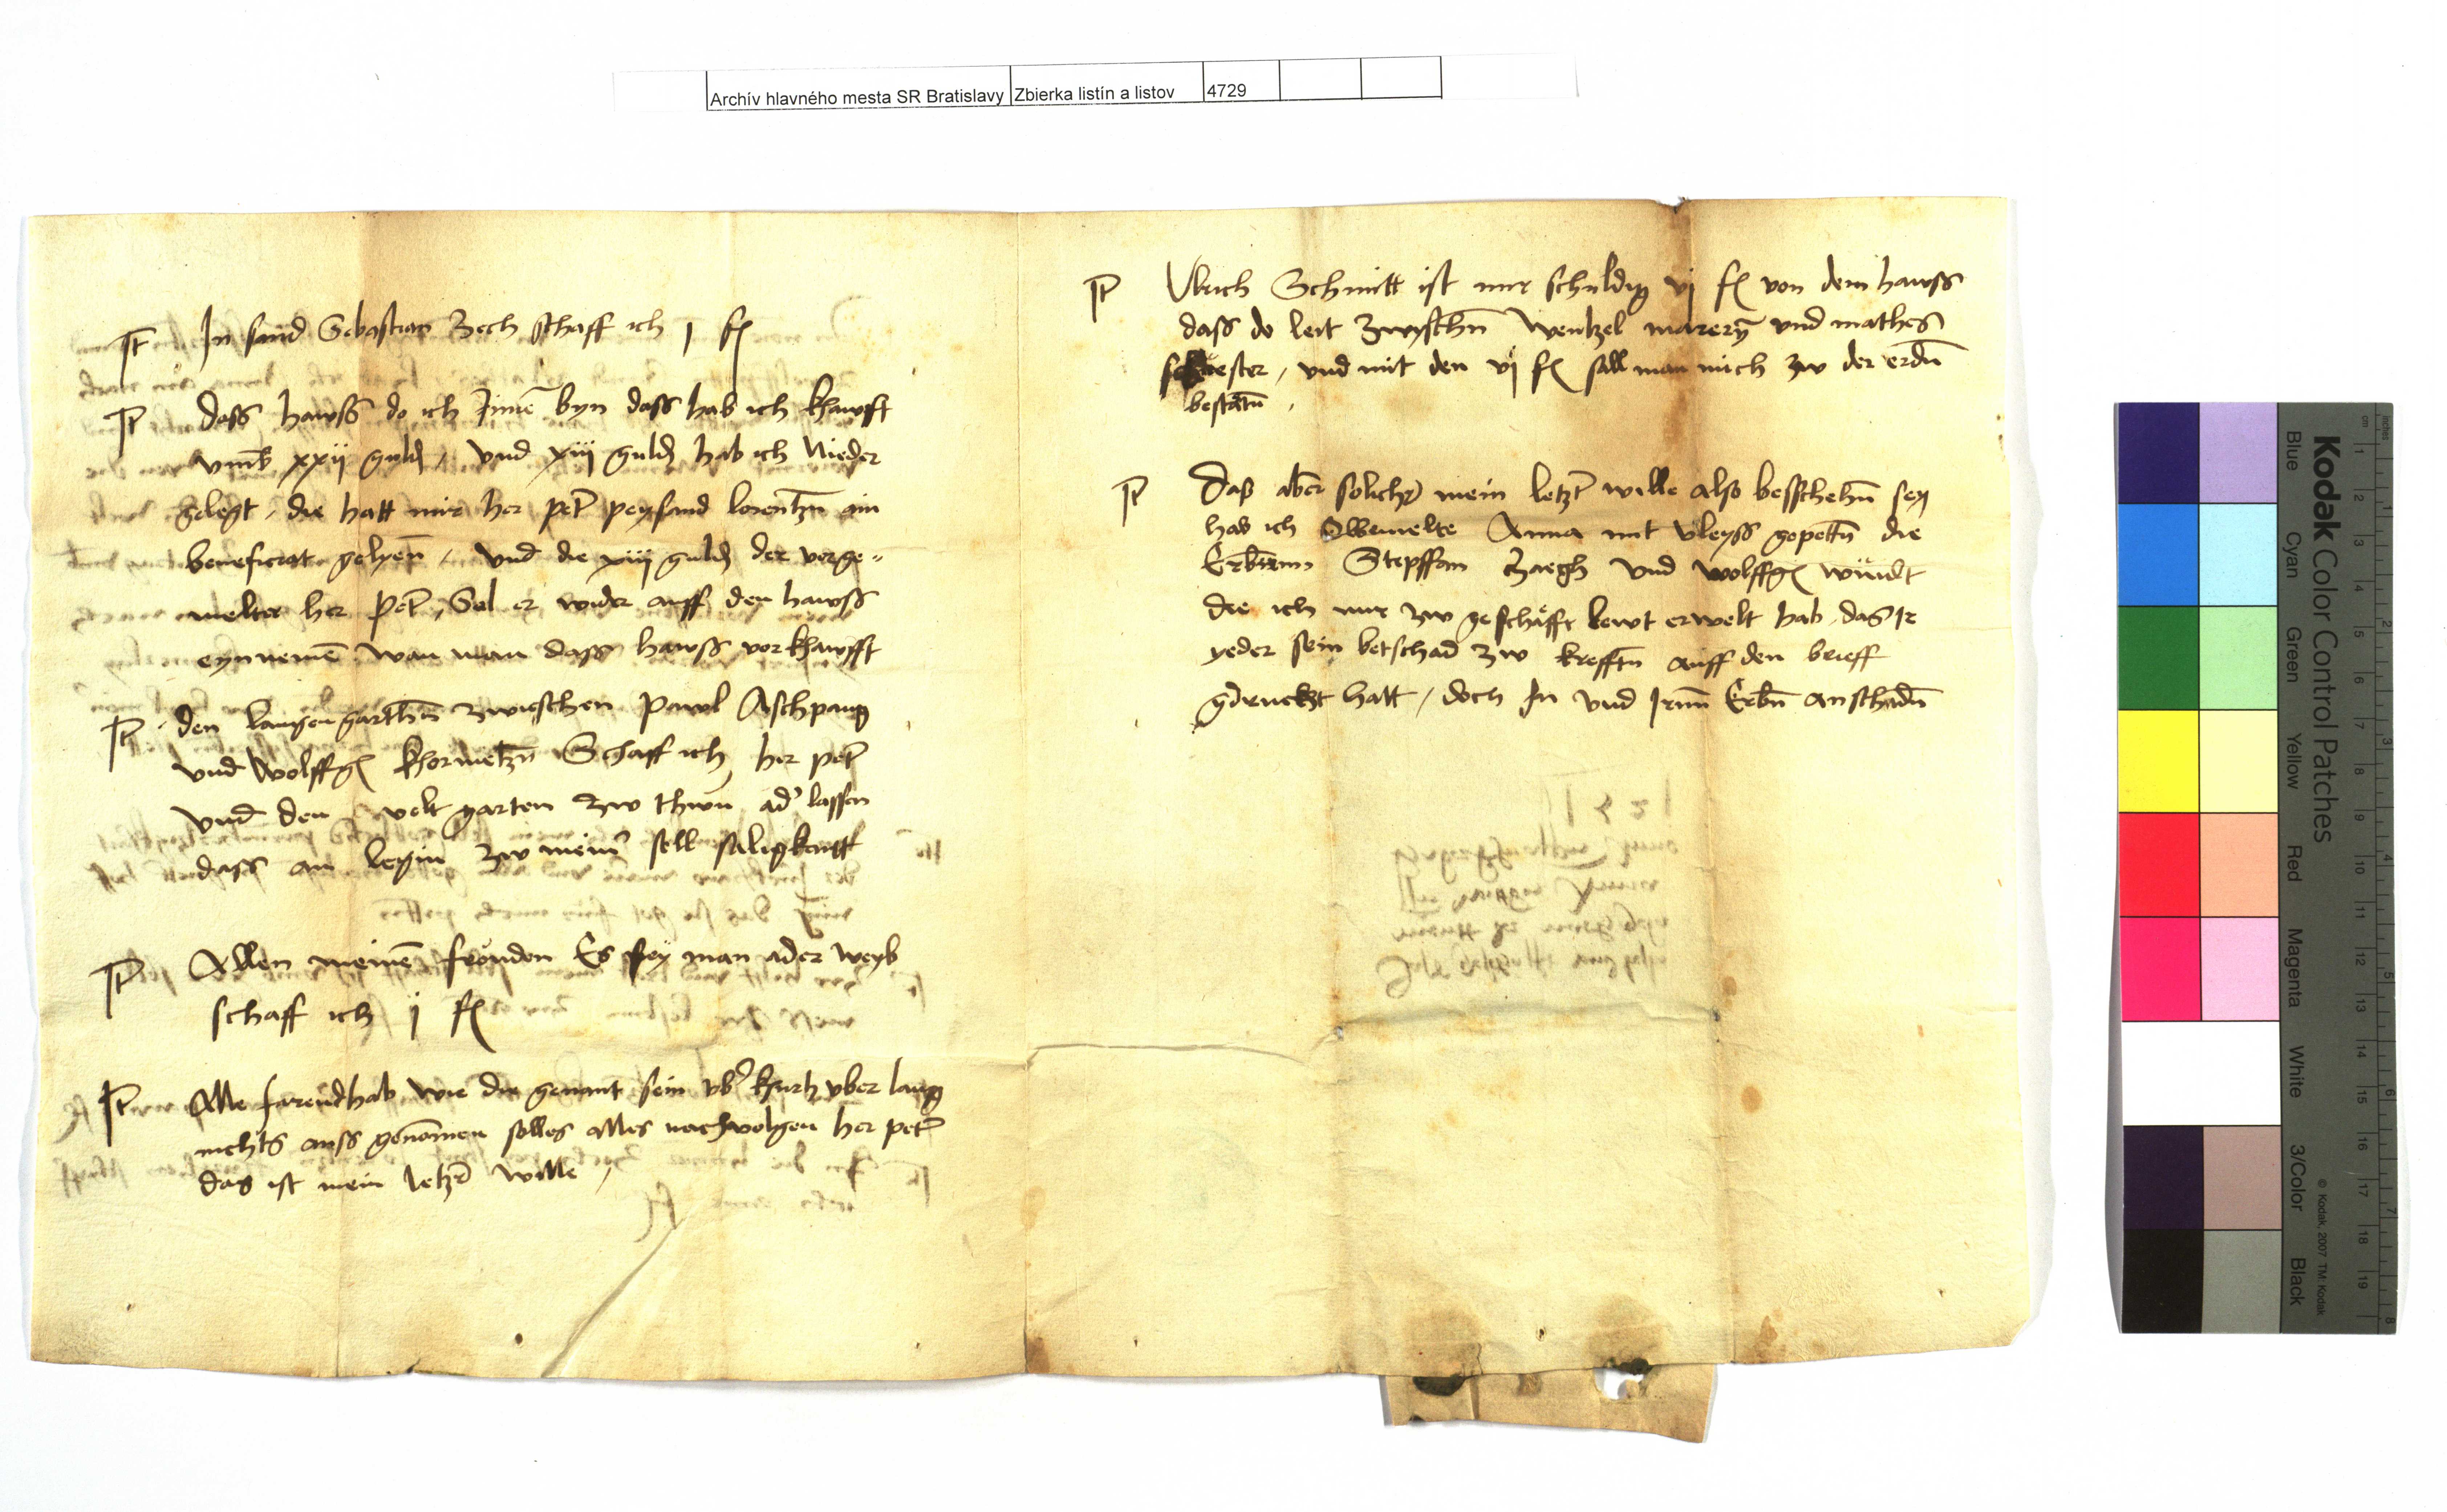 Archív hlavného mesta SR Bratislavy Zbierka listín a listov 4729
It In sand Sebastian Zech schaff ich j fl
It Dass hawss do ich Inne byn dass hab ich khawfft
vmb xxij guld / vnd xiij guld hab ich Nieder
gelegt / die hatt mir her pet peysand lorentzn ain
beneficiat gelyen / vnd die xiij guld der vorge„
melter her Pet / Sol er wider auff den hawss
eynnemen wan man dass hawss vorkhawfft
It den langen garthn zwieschen pawl Aschpaug
vnd Wolffg khormetzn Schaff ich her pet
vnd den velt garten zw thun ad lassen
dass an legin zw mein sell saligkeitt
It Allen meinen frönden Es sey man ader weyb
schaff ich ij fl
It Alle farendhab wie die genant sein vb khurtz vber lang
nichts auss genomen solles alles nachvolgen her pet
das ist mein letzt wille /
It Vlrich Schmitt ist mir schuldig vj fl von dem hawss
dass do leit zwyschn Wentzel marery vnd mathes
schuester / vnd mit den vj fl soll man mich zw der erdn
bestatn /
It Daß aber solichs mein letzt wille also besschehn sey
hab ich Obemelte Anna mit vleyss gepettn die
Erbern Stepffan Zaegh vnd Wolffg Wündt
die ich mir zw geschäfft lewt erwelt hab das Ir
yeder sein betschad zw krefftn auff den brieff
gedruckht hatt / doch In vnd Irnn Erbn anschadn
Kodak Color Control Patches
Blue Cyan Green Yellow Red Magenta White 3/Color Black
© Kodak, 2007 TM: Kodak
inches 1 2 3 4 5 6 7 8
cm 1 2 3 4 5 6 7 8 9 10 11 12 13 14 15 16 17 18 19